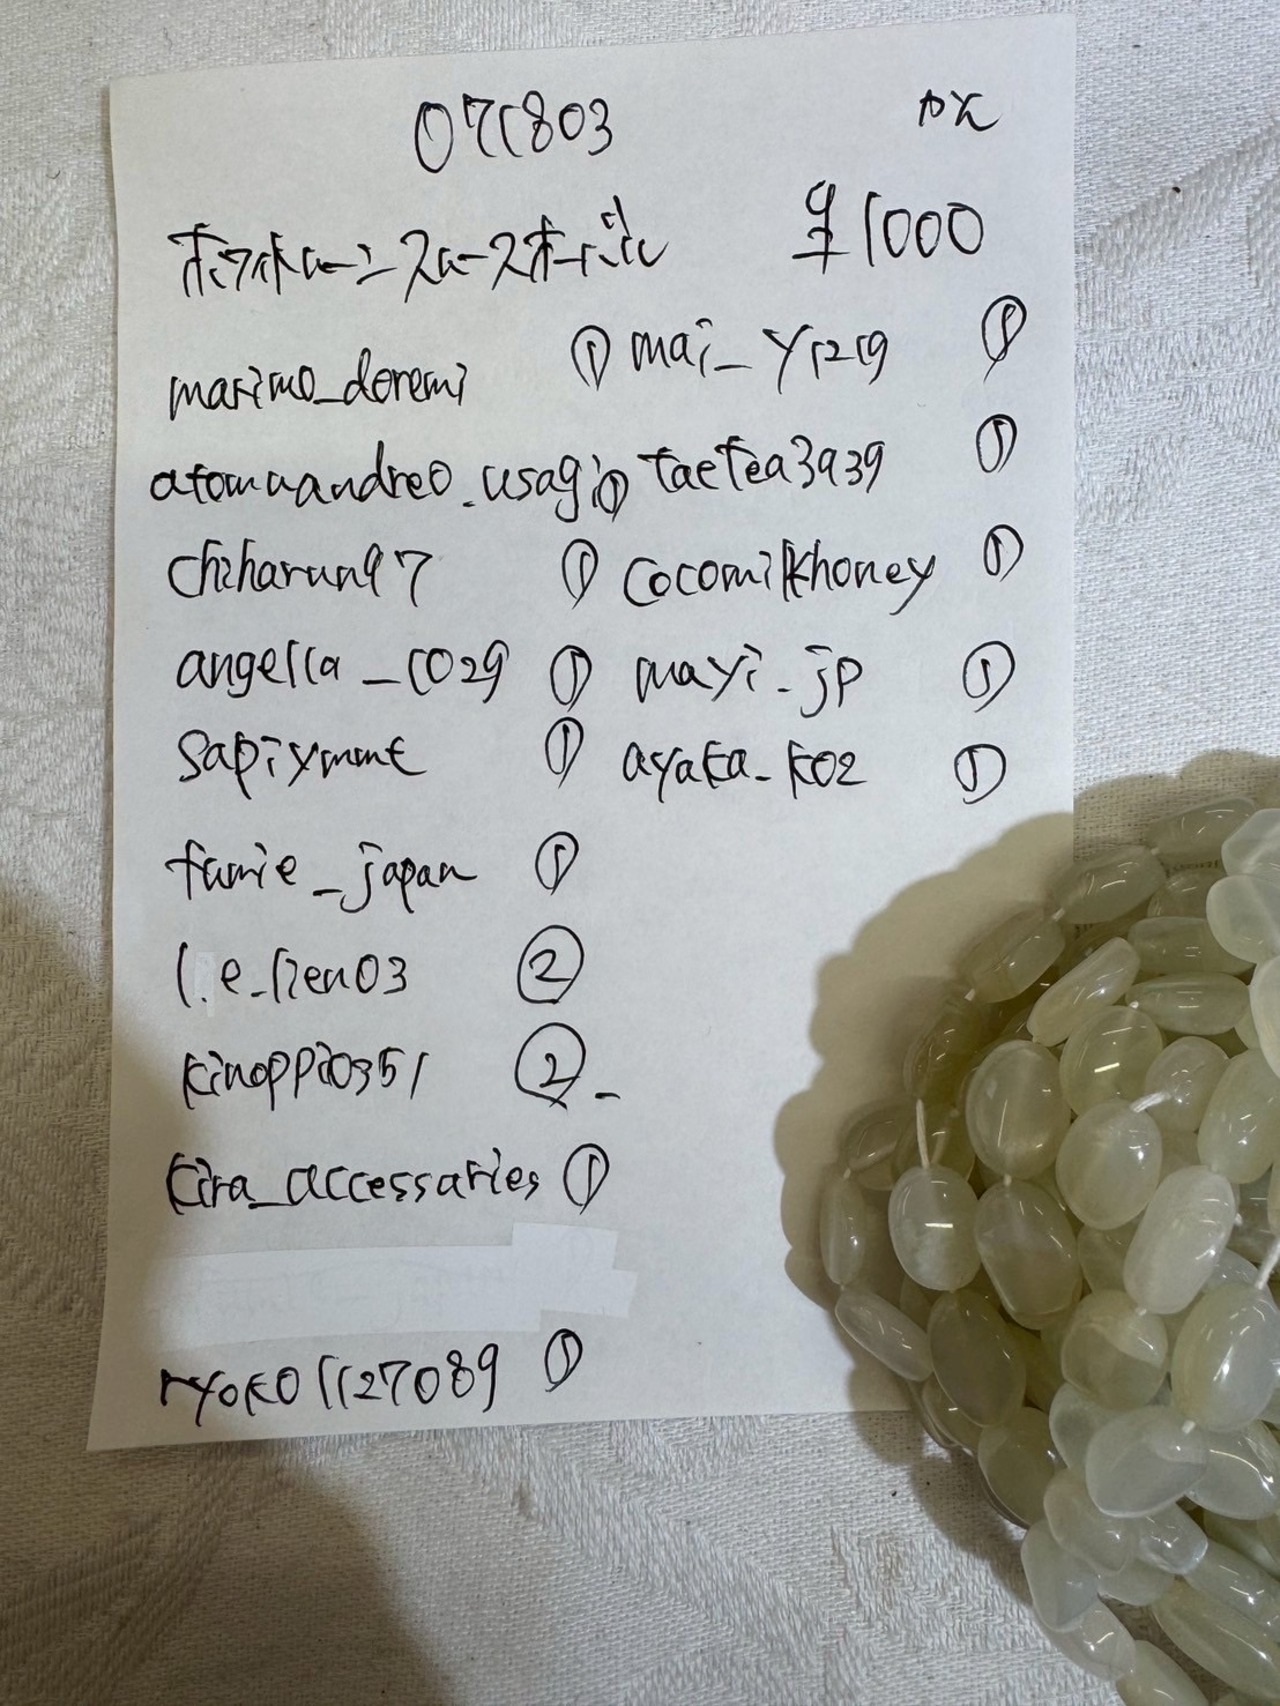 071803
ホワイトムーンストーン スムースオーバル ¥1000
marimo_doremi ① mai_y1219 ①
atomuandreo_usagi ① taetea3939 ①
chiharun97 ① cocomilkhoney ①
angella_1029 ① mayi_jp ①
sapiymmt ① ayaka_k02 ①
fumie_japan ①
l.e_lien03 ②
kinoppi0351 ②
kira_accessaries ①
ryoko1127089 ①